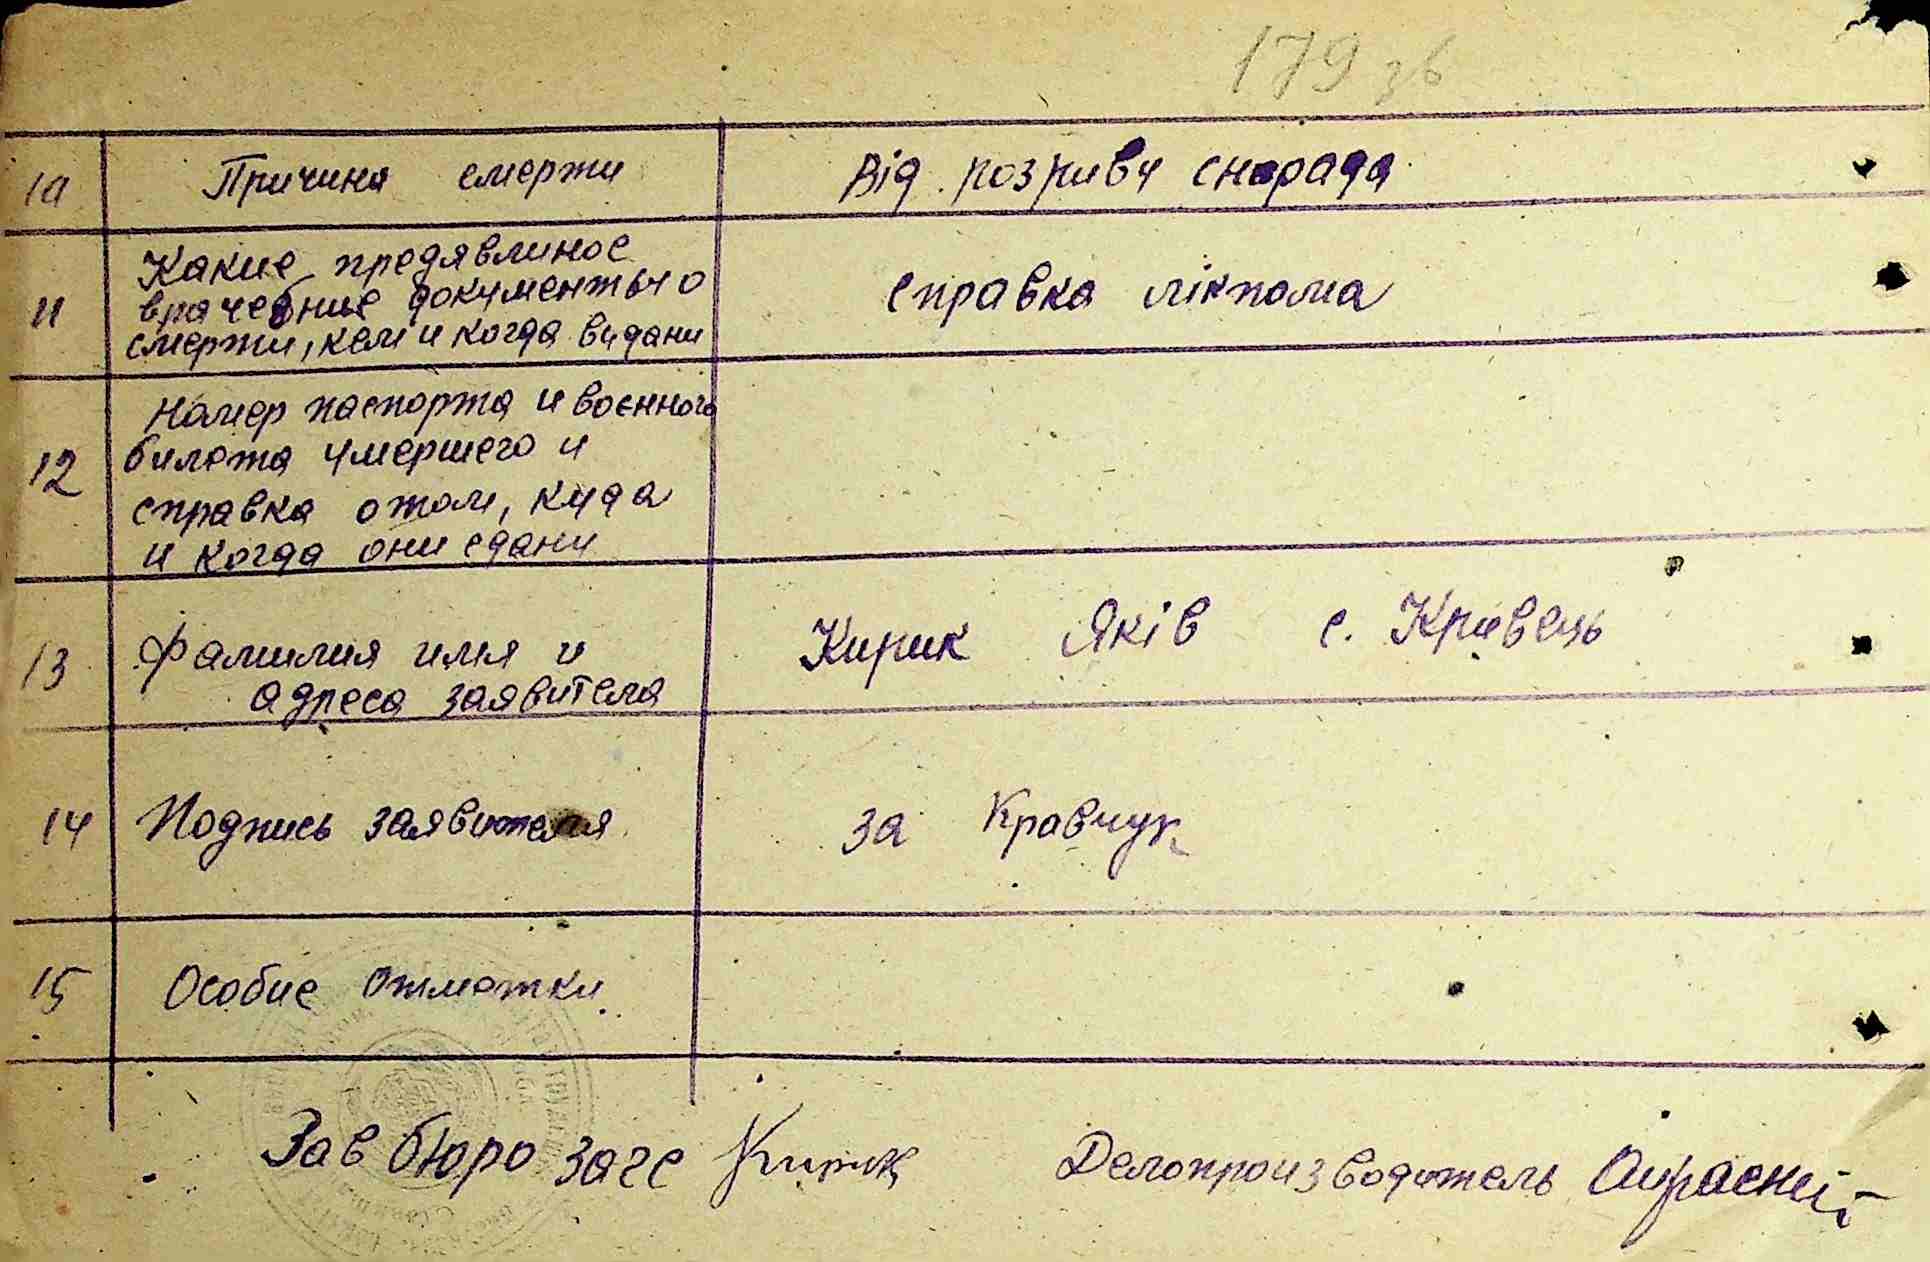 179 зв
10 Причина смерти Від розриву снарада
Какие предявлиное
врачебние документы о
11 смерти, кем и когда видани справка лікпома
Номер паспорта и воєнного
12 билета умершего и
справка о том, куда
и когда они сдани
13 Фамилия имя и Кирик Яків с. Крівець
адреса заявителя
14 Подпись заявителя за Кравчук
15 Особие отметки
Зав бюро загс Кирик Делопроизводитель